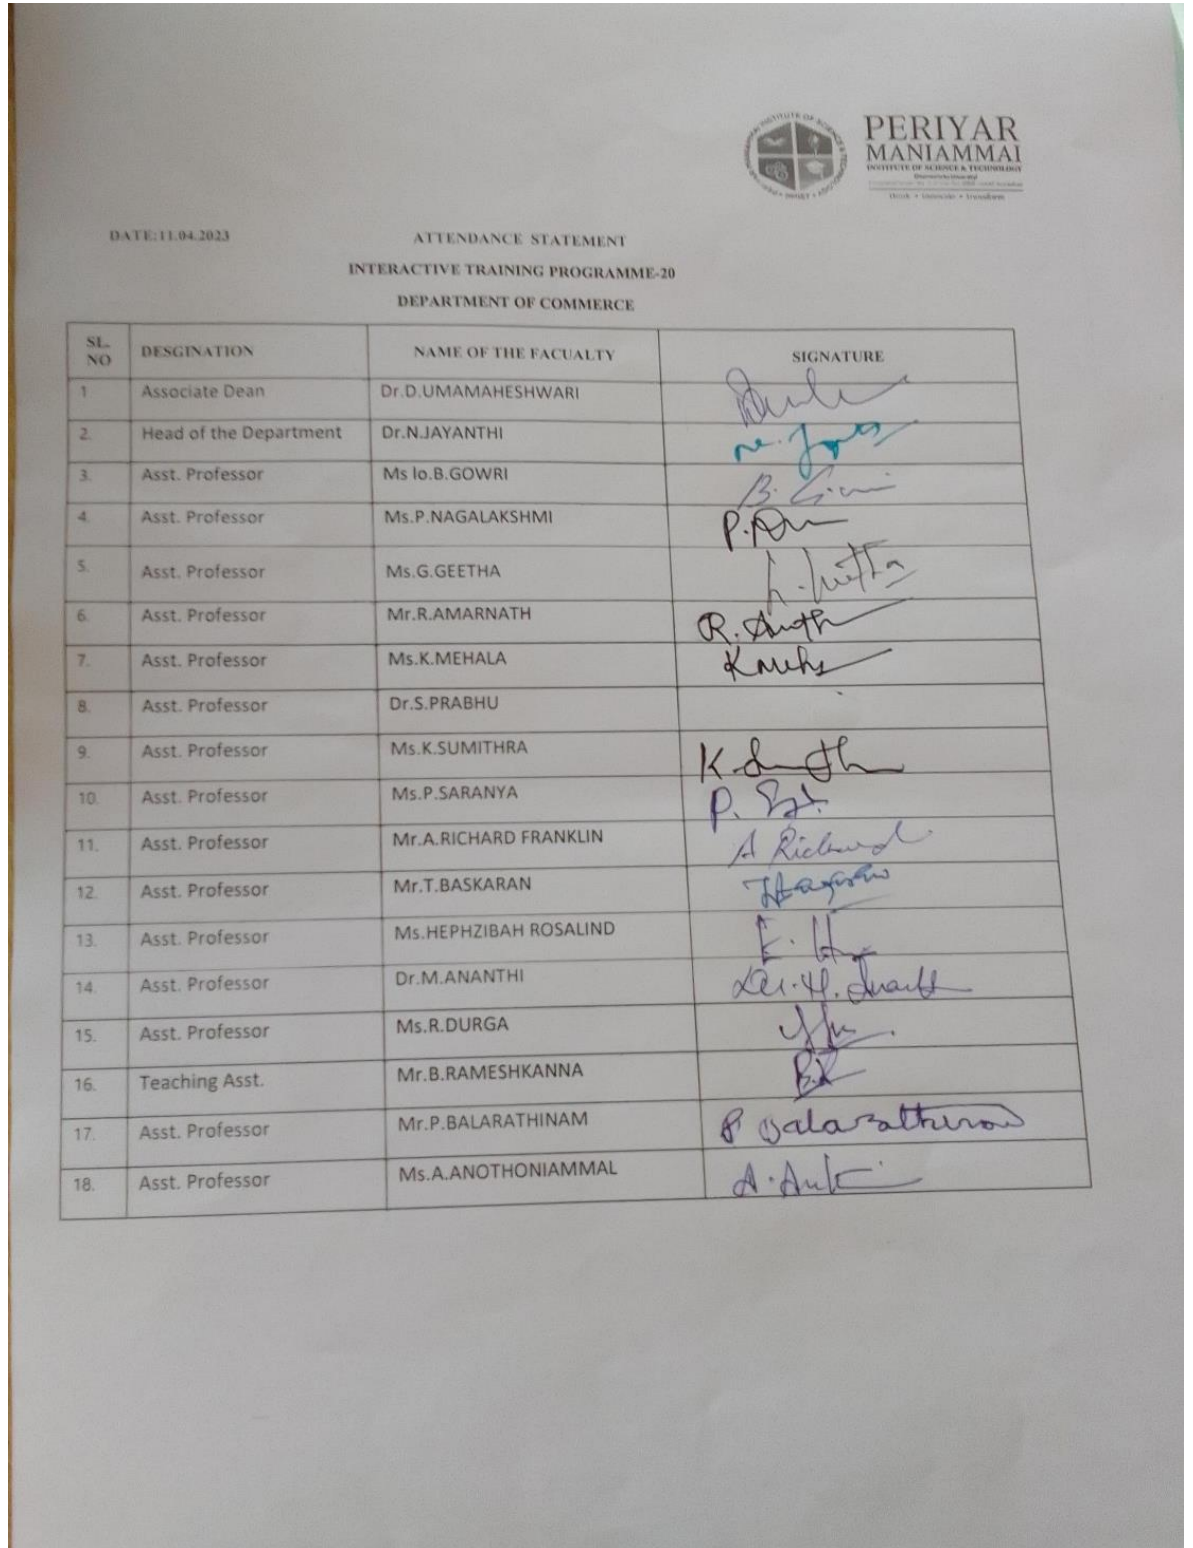 PERIYAR
MANIAMMAI
INSTITUTE OF SCIENCE & TECHNOLOGY
DATE:11.04.2023
ATTENDANCE STATEMENT
INTERACTIVE TRAINING PROGRAMME-20
DEPARTMENT OF COMMERCE
SL. NO DESGINATION NAME OF THE FACUALTY SIGNATURE
1 Associate Dean Dr.D.UMAMAHESHWARI
2. Head of the Department Dr.N.JAYANTHI
3. Asst. Professor Ms lo.B.GOWRI
4. Asst. Professor Ms.P.NAGALAKSHMI
5. Asst. Professor Ms.G.GEETHA
6. Asst. Professor Mr.R.AMARNATH
7. Asst. Professor Ms.K.MEHALA
8. Asst. Professor Dr.S.PRABHU
9. Asst. Professor Ms.K.SUMITHRA
10. Asst. Professor Ms.P.SARANYA
11. Asst. Professor Mr.A.RICHARD FRANKLIN A Richard
12. Asst. Professor Mr.T.BASKARAN
13. Asst. Professor Ms.HEPHZIBAH ROSALIND
14. Asst. Professor Dr.M.ANANTHI
15. Asst. Professor Ms.R.DURGA
16. Teaching Asst. Mr.B.RAMESHKANNA
17. Asst. Professor Mr.P.BALARATHINAM
18. Asst. Professor Ms.A.ANOTHONIAMMAL